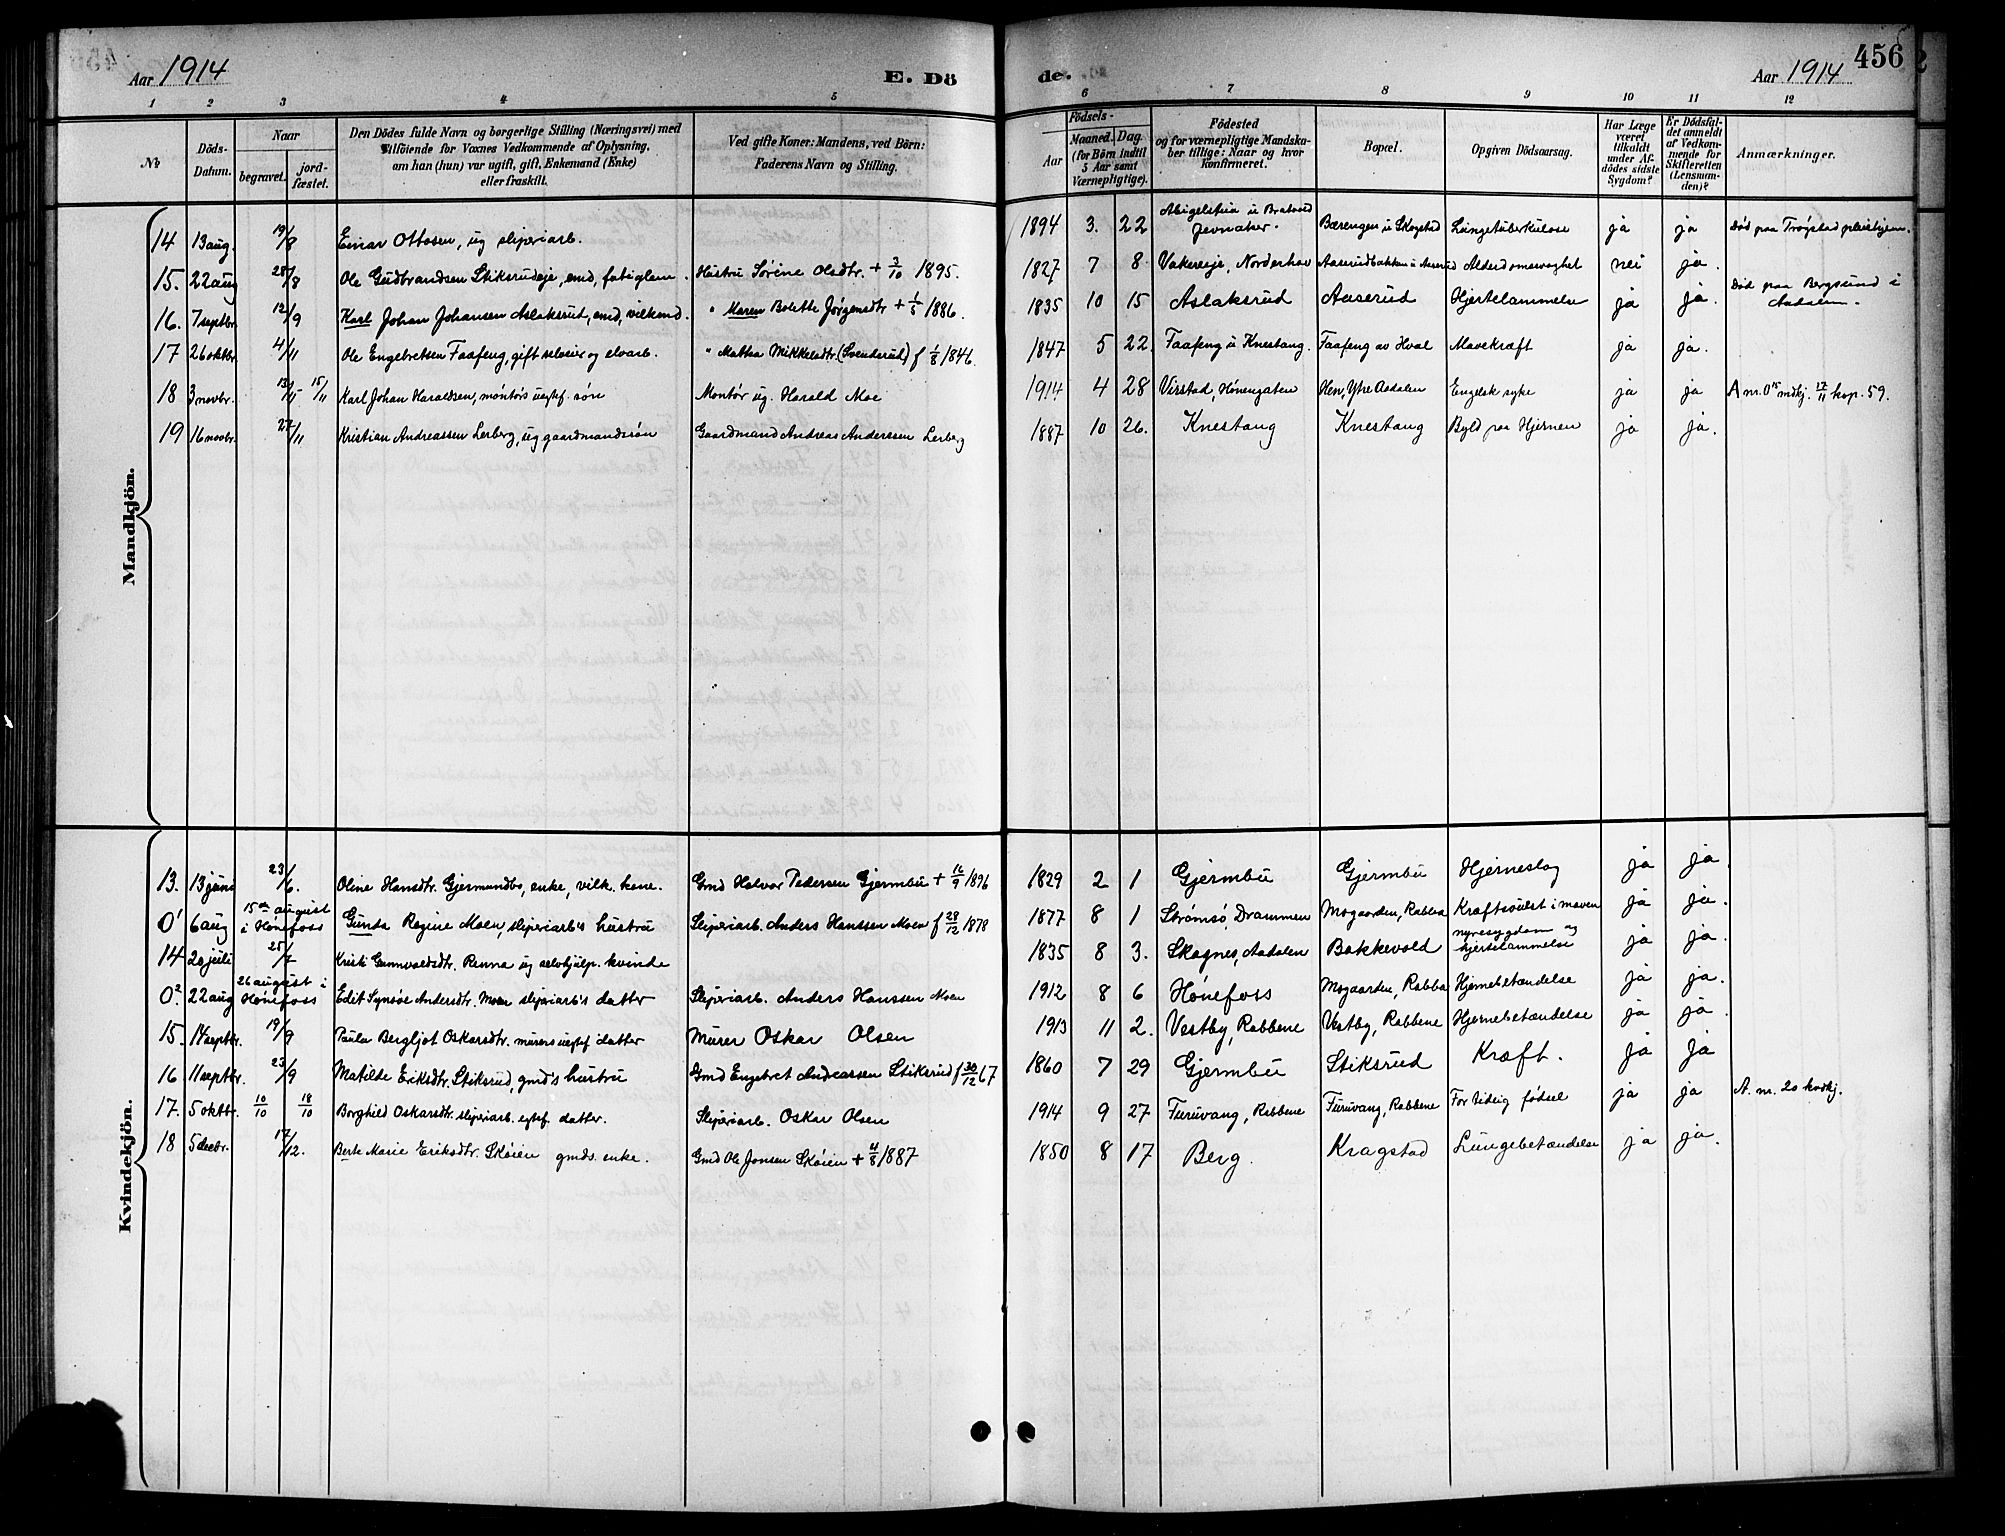 Aar 1914
E. Dö
de.
Aar 1914
456
1 2 3 4 5 6 7 8 9 10 11 12
No
Döds-
Datum.
Naar
begravet.
jord-
fæstet.
Den Dödes fulde Navn og borgerlige Stilling (Næringsvei) med
Tilföiende for Voxnes Vedkommende af Oplysning,
om han (hun) var ugift, gift, Enkemand (Enke)
eller fraskilt.
Ved gifte Koner: Mandens, ved Börn:
Faderens Navn og Stilling.
Födsels-
Aar
Maaned.
Dag.
(for Börn indtil
5 Aar samt
Værnepligtige).
Födested
og for værnepligtige Mandska-
ber tillige: Naar og hvor
konfirmeret.
Bopæl.
Opgiven Dödsaarsag.
Har Læge
været
tilkaldt
under Af-
dödes sidste
Sygdom?
Er Dödsfal-
det anmeldt
af Vedkom-
mende for
Skifteretten
(Lensman-
den)?
Anmærkninger.
Mandkjön.
14 13 aug. 19/8 Einar Ottosen, ug sliperiarb. 1894 3. 22 Jevnaker. Bærengen u Skagstad Lungetuberkulose ja ja Død paa Trøgstad pleiehjem.
15. 22 aug 28/8 Ole Gudbrandsen Stiksrudeje, emd, fatiglem. Hustru Sørine Olsdtr. + 3/10 1895. 1827 7 8. Vakereie, Norderhov Aaserudbakken u Aaserud Alderdomssvaghet nei ja.
16. 7 septbr. 12/9 Karl Johan Johansen Aslaksrud, emd, vilkmd. " Maren Bolette Jørgensdtr + 1/5 1886. 1835 10 15 Aslaksrud Aaserud Hjertelammelse ja ja. Død paa Bergsund i Aadalen.
17 26 oktbr. 4/11 Ole Engebretsen Faafeng, gift selveier og elvarb. " Mathea Mikkelsdtr. (Svenderud) f 1/8 1846. 1847 5 22. Faafeng u Knestang. Faafeng av Hval Mavekræft ja ja.
18 3 novbr. 13/11 15/11 Karl Johan Haraldsen, montørs uegtef. søn Montør ug. Harald Moe 1914 4 28 Virstad, Hønengaten Hen, Ytre Aadalen Engelsk syke ja ja A nr. 0 15 mdkj. 17/11 kop. 59.
19 16 novbr. 27/11 Kristian Andreassen Lerberg, ug gaardmandssøn Gaardmand Andreas Anderssen Lerberg 1887 10 26. Knestang Knestang Byld paa Hjernen ja ja.
Kvindekjön.
13. 13 juni 23/6. Oline Hansdtr. Gjermundbo, enke, vilk. kone. Gmd Halvor Pedersen Gjermbu + 16/9 1896 1829 2 1 Gjermbu Gjermbu Hjerneslag ja ja.
0¹ 6 aug 15de august i Hønefoss Gunda Regine Moen, sliperiarb's hustru Sliperiarb. Anders Hanssen Moen f 28/12 1878 1877 8 1 Strømsø, Drammen Mogaarden, Rabba Kræftsvulst i maven ja ja.
14 20 juli 25/7 Kristi Gunnvoldsdtr. Renna ug selvhjulp. kvinde 1835 8 3. Skagnes, Aadalen Bakkevold nyresygdom og hjertelammelse ja ja.
0². 22 aug 26 august i Hønefoss Edit Synøe Andersdtr. Moen sliperiarb's datter Sliperiarb. Anders Hanssen Moen 1912 8 6 Hønefoss Mogaarden, Rabba Hjernebetændelse ja ja.
15. 14 septbr. 19/9 Paula Bergljot Oskarsdtr. murers uegtef datter Murer Oskar Olsen 1913 11 2. Vestby, Rabbene Vestby, Rabbene Hjernebetændelse ja ja.
16 11 septbr. 23/9 Matilde Eriksdtr. Stiksrud, gmd's hustru Gmd Engebret Andreassen Stiksrud f 30/12 67 1860 7 29 Gjermbu Stiksrud Kræft. ja ja
17. 5 oktbr. 10/10 18/10 Borghild Oskarsdtr. sliperiarb. egtef. datter. Sliperiarb. Oskar Olsen 1914 9 27 Furuvang, Rabbene Furuvang, Rabbene For tidlig fødsel ja ja A. nr. 20 kvdkj.
18 5 decbr. 17/12. Berte Marie Eriksdtr. Skøien gmds enke. Gmd Ole Jonsen Skøien + 4/8 1887 1850 8 17 Berg. Kragstad Lungebetændelse ja ja.